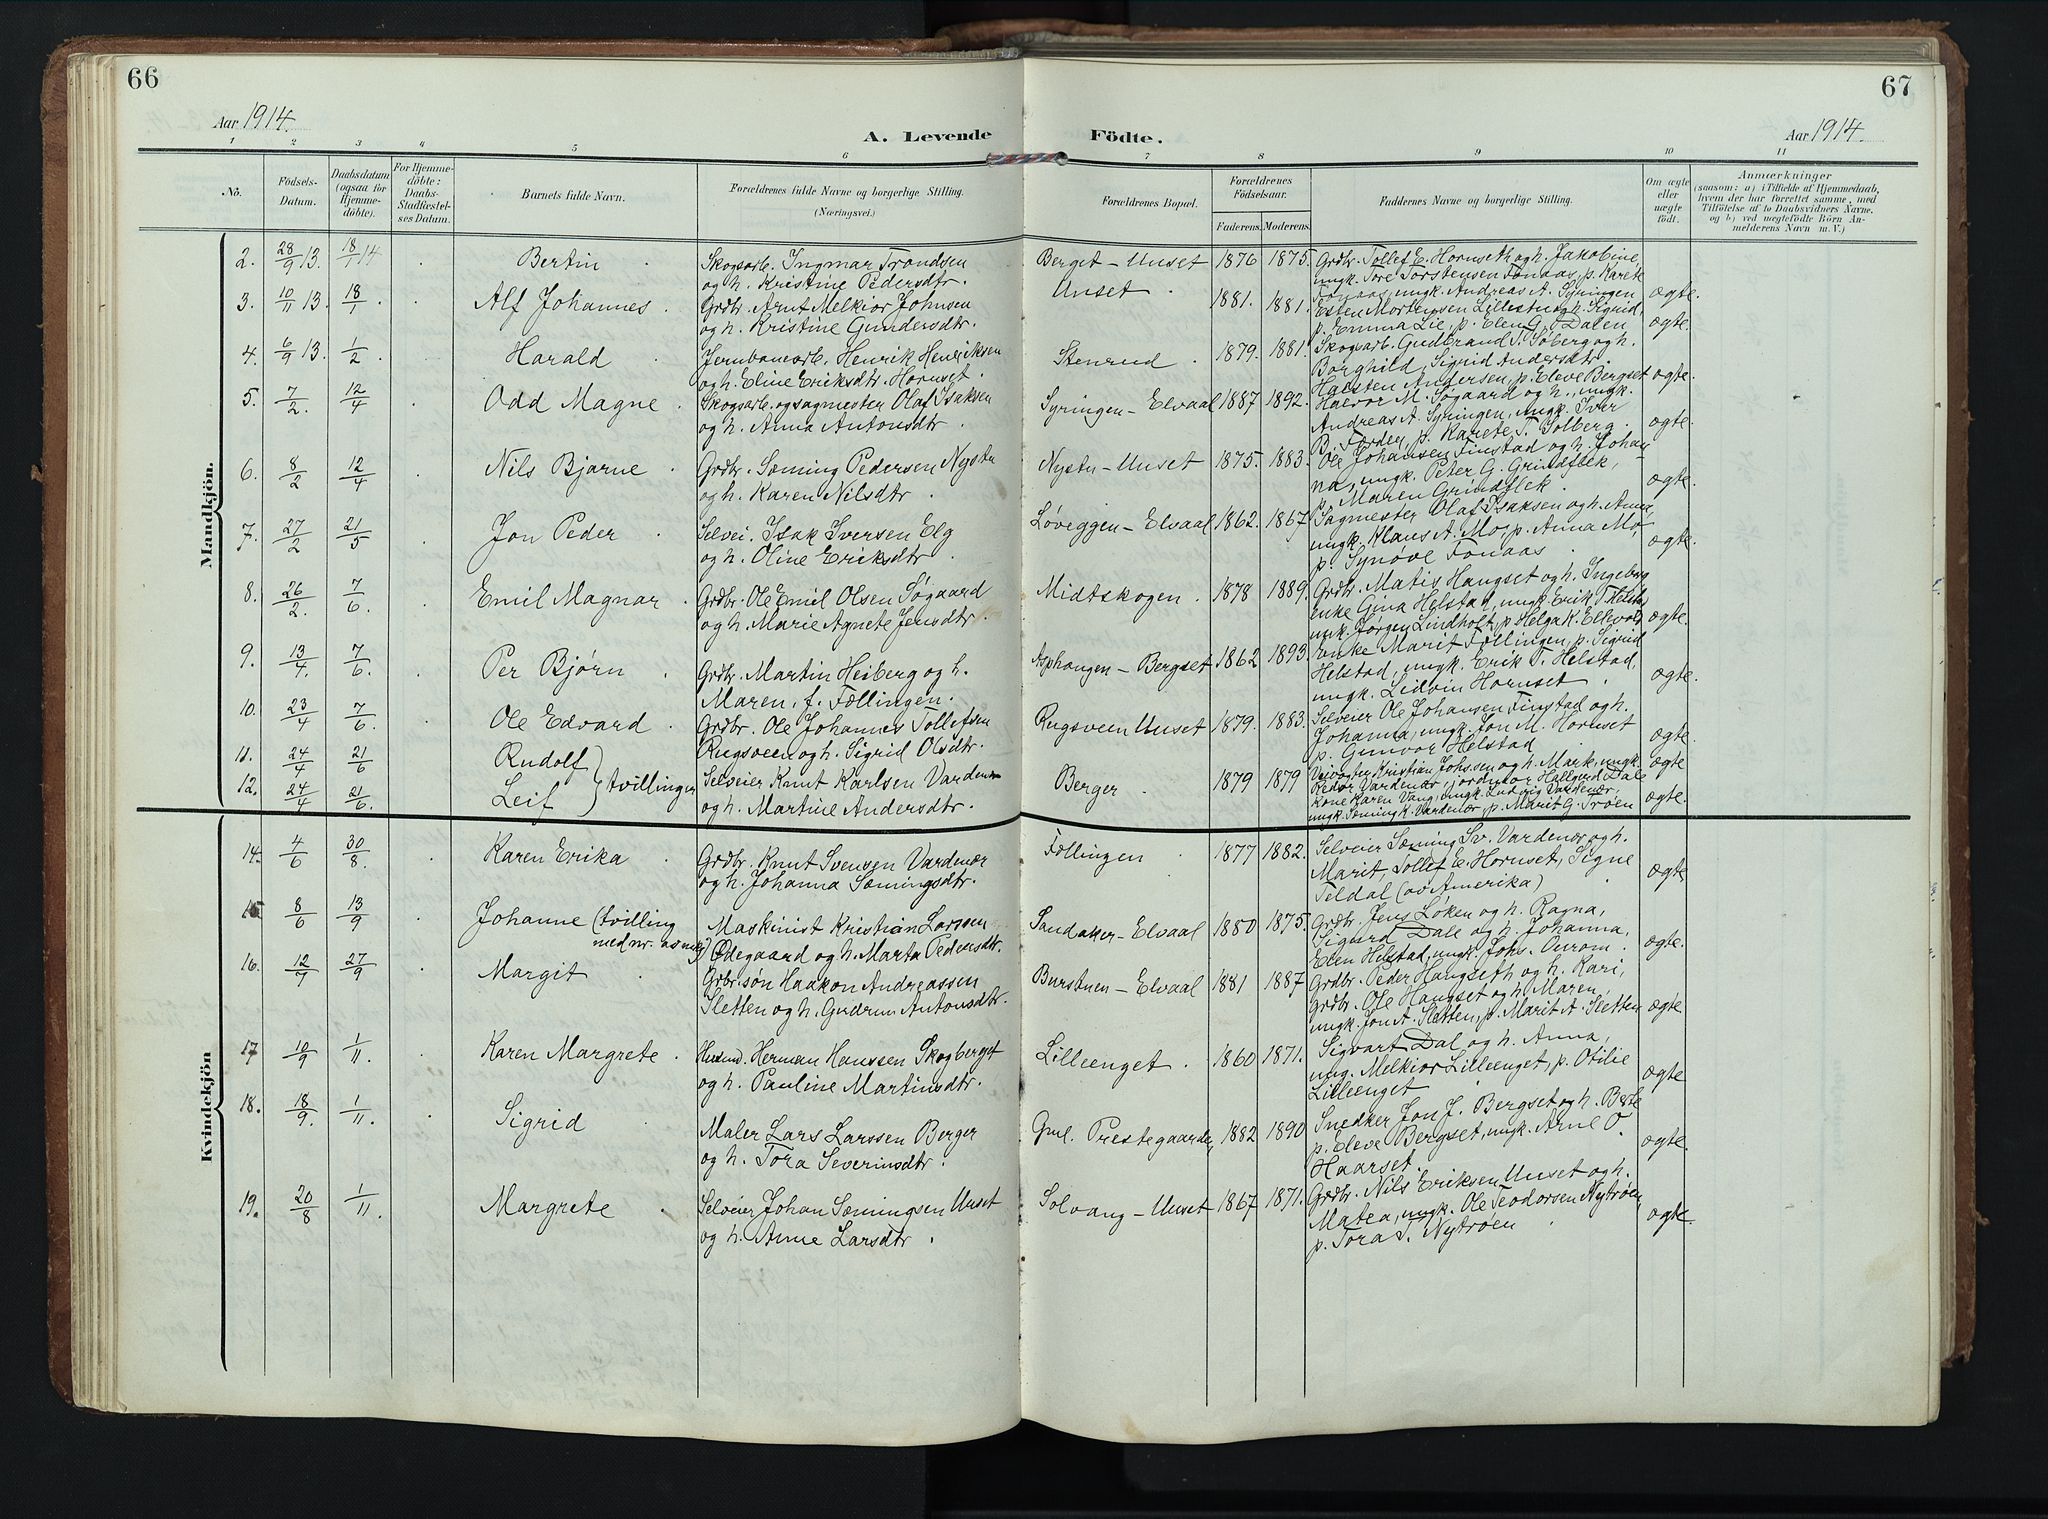 66
67
Aar 1914.
A. Levende
Födte.
Aar 1914.
1 2 3 4 5 6 7 8 9 10 11
No.
Födsels-
Datum.
Daabsdatum
(ogsaa for
Hjemme-
döbte).
For Hjemme-
döbte:
Daabs-
Stadfæstel-
ses Datum.
Barnets fulde Navn.
Forældrenes fulde Navne og borgerlige Stilling.
(Næringsvei.)
Forældrenes Bopæl.
Forældrenes
Födselsaar.
Faderens. Moderens.
Faddernes Navne og borgerlige Stilling.
Om ægte
eller
uægte
født.
Anmærkninger
(saasom: a) i Tilfælde af Hjemmedaab,
hvem der har forrettet samme, med
Tilföielse af to Daabsvidners Navne,
og b) ved uægtefödte Börn An-
melderens Navn m. V.)
Mandkjön.
2. 28/9 13. 18/1 14 Bertin
Skogsarb. Ingmar Trondsen
og h. Kristine Pedersdtr.
Berget - Unset 1876 1875.
Grdbr. Tollef E. Hornseth og h. Jakobine,
ungk. Tore Torstensen Fonaas, p. Karete
Fonaas, ungk. Andreas A. Syringen
ægte.
3. 10/11 13. 18/1 Alf Johannes
Grdbr. Arnt Melkior Johnsen
og h. Kristine Gundersdtr.
Unset 1881. 1881.
Esten Mortensen Lillestu og h. Sigrid,
p. Emma Lie, p. Elen G. Dalen,
ægte.
4. 6/9 13. 1/2 Harald
Jernbanearb. Henrik Henriksen
og h. Eline Eriksdtr. Hornset.
Stenrud 1879. 1881.
Skogsarb. Gudbrand T. Søberg og h.
Borghild, Sigrid Andersdtr.
Halsten Andersen, p. Eleve Bergset
ægte.
5. 7/2. 12/4 Odd Magne
Skogsarb. og sagmester Olaf Isaksen
og h. Anna Antonsdtr.
Syringen - Elvaal 1887 1892.
Halvor M. Søgaard og h., ungk.
Andreas A. Syringen, ungk. Iver
B. Forden, p. Karete T. Solberg.
ægte.
6. 8/2 12/4 Nils Bjarne
Grdbr. Sæming Pedersen Nystu
og h. Karen Nilsdtr.
Nystu - Unset 1875. 1883.
Ole Johansen Finstad og h. Johan-
na, ungk. Peter G. Grindflek,
p. Maren Grindflek.
ægte.
7. 27/2 21/5 Jon Peder
Selvei. Isak Iversen Elg
og h. Oline Eriksdtr.
Løveggen - Elvaal 1862. 1867
Sagmester Olaf Isaksen og h. Anna,
ungk. Klaus A. Mo, p. Anna Mo,
p. Synøve Fonaas.
ægte.
8. 26/2. 7/6 Emil Magnar
Grdbr. Ole Emil Olsen Søgaard
og h. Marie Agnete Jensdtr.
Midtskogen. 1878 1889.
Grdbr. Matis Haugset og h. Ingeborg
enke Gina Helstad, ungk. Erik T. Helstad
ungk. Jørgen Lindholt, p. Helga K. Elkvold
ægte.
9. 13/4. 7/6. Per Bjørn
Grdbr. Martin Heiberg og h.
Maren, f. Føllingen.
Asphaugen - Bergset 1862 1893.
Enke Marit Føllingen, p. Sigrid
Helstad, ungk. Erik T. Helstad,
ungk. Lidvin Hornset.
ægte.
10. 23/4 7/6. Ole Edvard
Grdbr. Ole Johannes Tollefsen
Rugsveen og h. Sigrid Olsdtr.
Rugsveen Unset 1879. 1883.
Selveier Ole Johansen Finstad og h.
Johanna, ungk. Jon M. Hornset
p. Gunvor Helstad
ægte.
11. 24/4 21/6 Rudolf
12. 24/4 21/6 Leif
tvillinger
Selveier Knut Karlsen Vardenær
og h. Martine Andersdtr.
Berger 1879 1879
Veivogter Kristian Johssen og h. Mark, ungk.
Redor Vardenær, jordmor Hallgerd Dale
Kone Karen Vang, ungk. Ludvig Vardenær,
ungk. Sæming K. Vardenær, p. Marit G. Trøen
ægte
ægte.
Kvindekjön
14. 4/6 30/8. Karen Erika
Grdbr. Knut Svensen Vardenær
og h. Johanna Sæmingsdtr.
Føllingen 1877 1882.
Selveier Sæming Sv. Vardenær og h.
Marit, Tollef E. Hornset, Signe
Teldal (av Amerika)
ægte
15 8/6 13/9 Johanne (tvilling
med nr.
Maskinist Kristian Larssen
Ødegaard og h. Marta Pedersdtr.
Sandaker - Elvaal 1880 1875.
Grdbr. Jens Løken og h. Ragna,
Sigurd Dale og h. Johanna,
Elen Helstad, ungk. Johs. Ourom.
ægte.
16. 12/7 27/9 Margit
Grdbr.søn Haakon Andreassen
Sletten og h. Gudrun Antonsdtr.
Burstuen - Elvaal 1881 1887
Grdbr. Peder Haugseth og h. Kari,
Grdbr. Ole Haugset og h. Maren,
ungk. Jon A. Sletten, p. Marit A. Sletten
ægte
17 10/9 1/11. Karen Margrete
Husmd. Herman Hanssen Skogberget
og h. Pauline Martinsdtr.
Lilleenget. 1860 1871.
Sigvart Dal og h. Anna,
ung. Melkior Lilleenget, p. Otilie
Lilleenget
ægte
18. 18/9. 1/11. Sigrid
Maler Lars Larssen Berger
og h. Tora Severinsdtr.
Gml. Prestegaarden, 1882 1890
Snedker Jon J. Bergset og h. Berte
p. Eleve Bergset, ungk. Arne O.
Haarset.
ægte.
19. 20/8 1/11. Margrete
Selveier Johan Sæmingsen Unset
og h. Anne Larsdtr.
Solvang - Unset 1867 1871.
Grdbr. Nils Eriksen Unset og h.
Matea, ungk. Ole Teodorsen Nytrøen,
p. Tora T. Nytrøen
ægte.